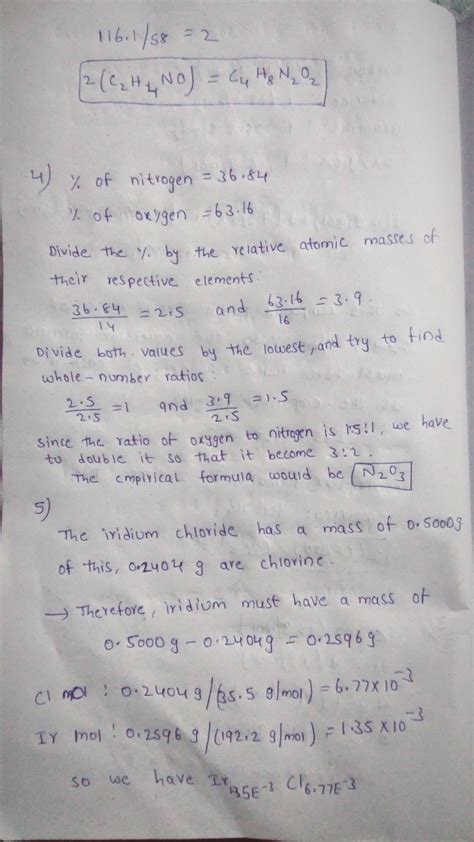 116.1/58 = 2
2(C2H4NO) = C4H8N2O2
4) % of nitrogen = 36.84
% of oxygen = 63.16
Divide the % by the relative atomic masses of
their respective elements:
36.84/14 = 2.5 and 63.16/16 = 3.9.
Divide both values by the lowest, and try to find
whole-number ratios:
2.5/2.5 = 1 and 3.9/2.5 = 1.5
since the ratio of oxygen to nitrogen is 1.5:1, we have
to double it so that it become 3:2.
The empirical formula would be N2O3
5)
The iridium chloride has a mass of 0.5000g
of this, 0.2404 g are chlorine.
→ Therefore, iridium must have a mass of
0.5000g - 0.2404g = 0.2596g
Cl mol : 0.2404g/(35.5 g/mol) = 6.77×10^-3
Ir mol : 0.2596g/(192.2 g/mol) = 1.35×10^-3
so we have Ir1.35E-3 Cl6.77E-3